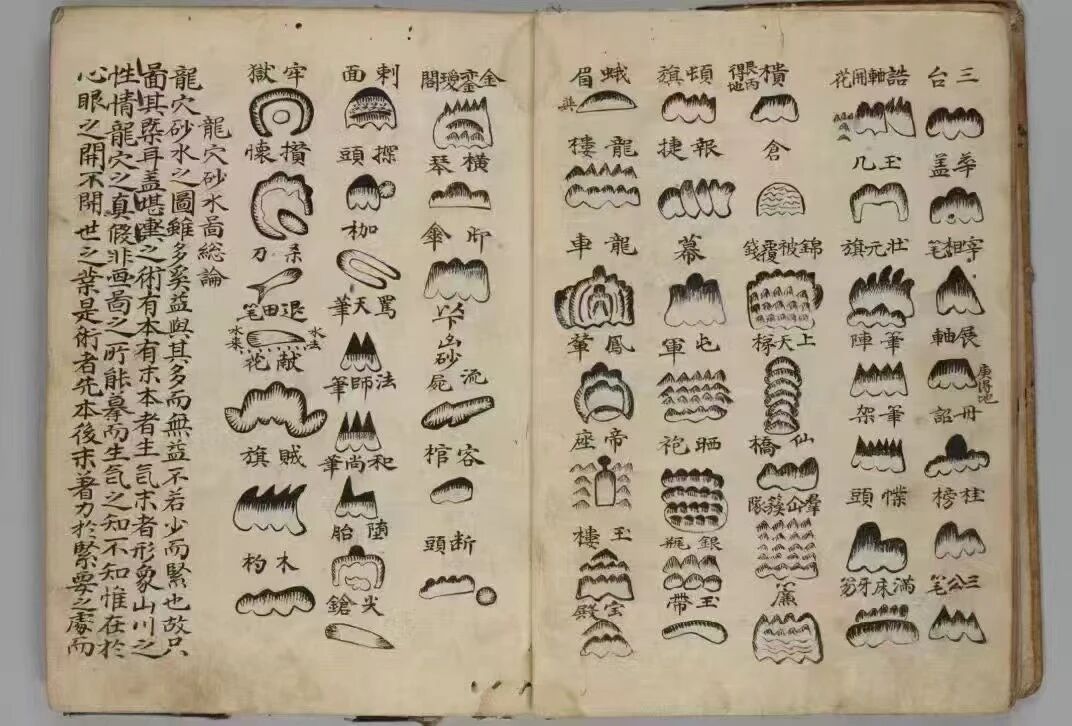 三台
華盖
宰相笔
展軸
庚得地
冊詔
桂榜
三公笔
誥軸開花
玉几
壮元旗
筆陣
筆架
幞頭
滿床牙笏
樻
艮丙得地
倉
錦被覆錢
上天梯
仙橋
羣仙簇隊
簾
頓旗
報捷
幕
屯軍
晒袍
銀瓶
玉帶
蛾眉
巽
龍樓
龍車
鳳輦
帝座
玉樓
宝殿
金鑾瓊閣
橫琴
傘
以下凶砂
流屍
客棺
断頭
刺面
探頭
枷
罵天筆
法師筆
和尚筆
堕胎
尖鎗
牢獄
攢懷
杀刀
退田笔
水法
水来
献花
賊旗
木杓
龍穴砂水啚総論
龍穴砂水之圖雖多奚益與其多而無益不若少而緊也故只
啚其槩耳盖堪輿之術有本有末本者生氣末者形象山川之
性情龍穴之真假非画啚之所能摹而生氣之知不知惟在於
心眼之開不開世之業是術者先本後末著力於緊要之處而